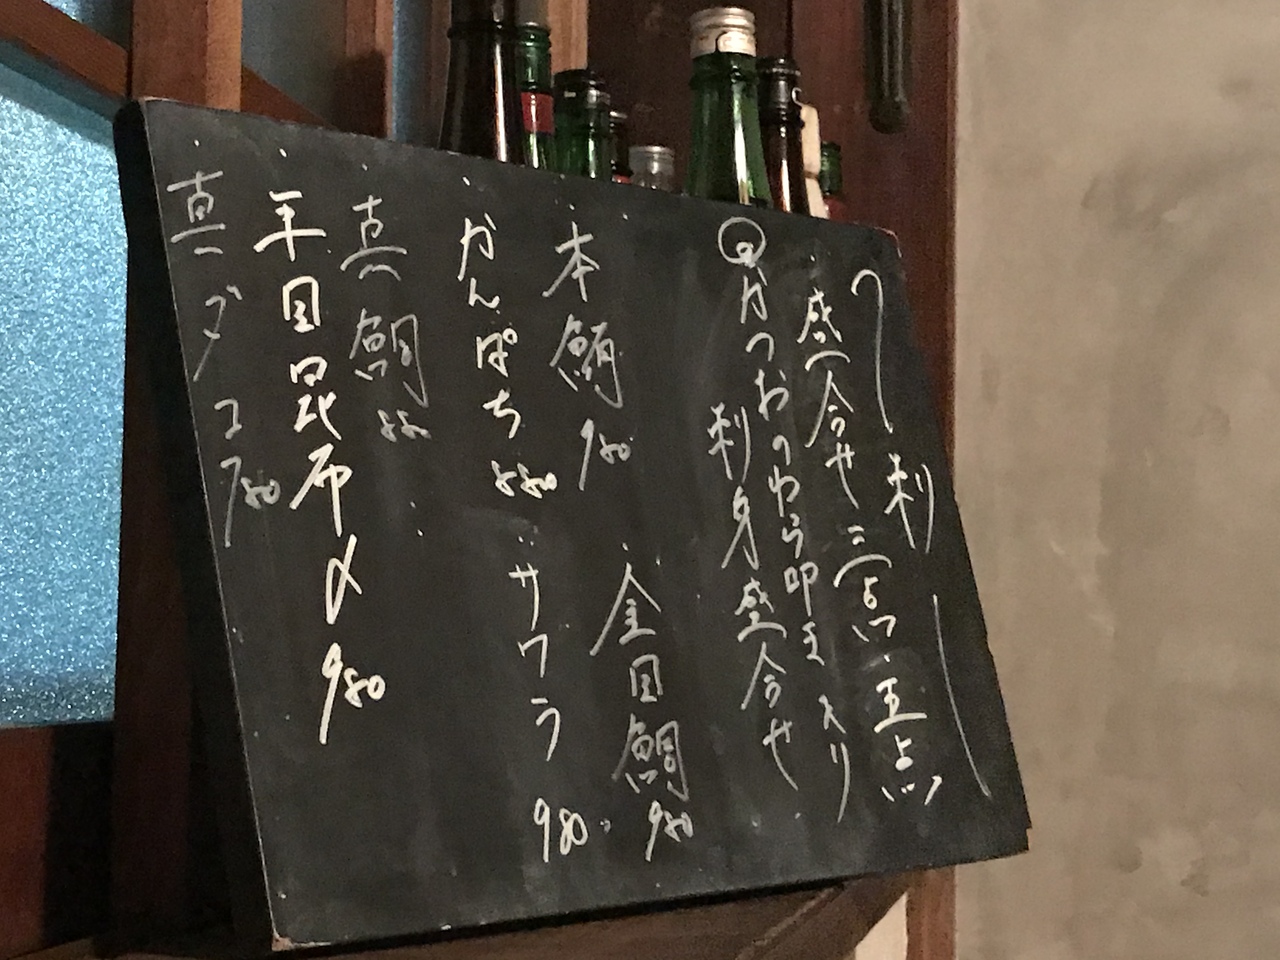 〜刺〜
・盛合せ 三点・五点
かつおのわら叩き入り
刺身盛合せ
・本鮪 980
・金目鯛 980
・かんぱち 880
・サワラ 980
・真鯛 880
・年目昆布〆 980
・真ダコ 780